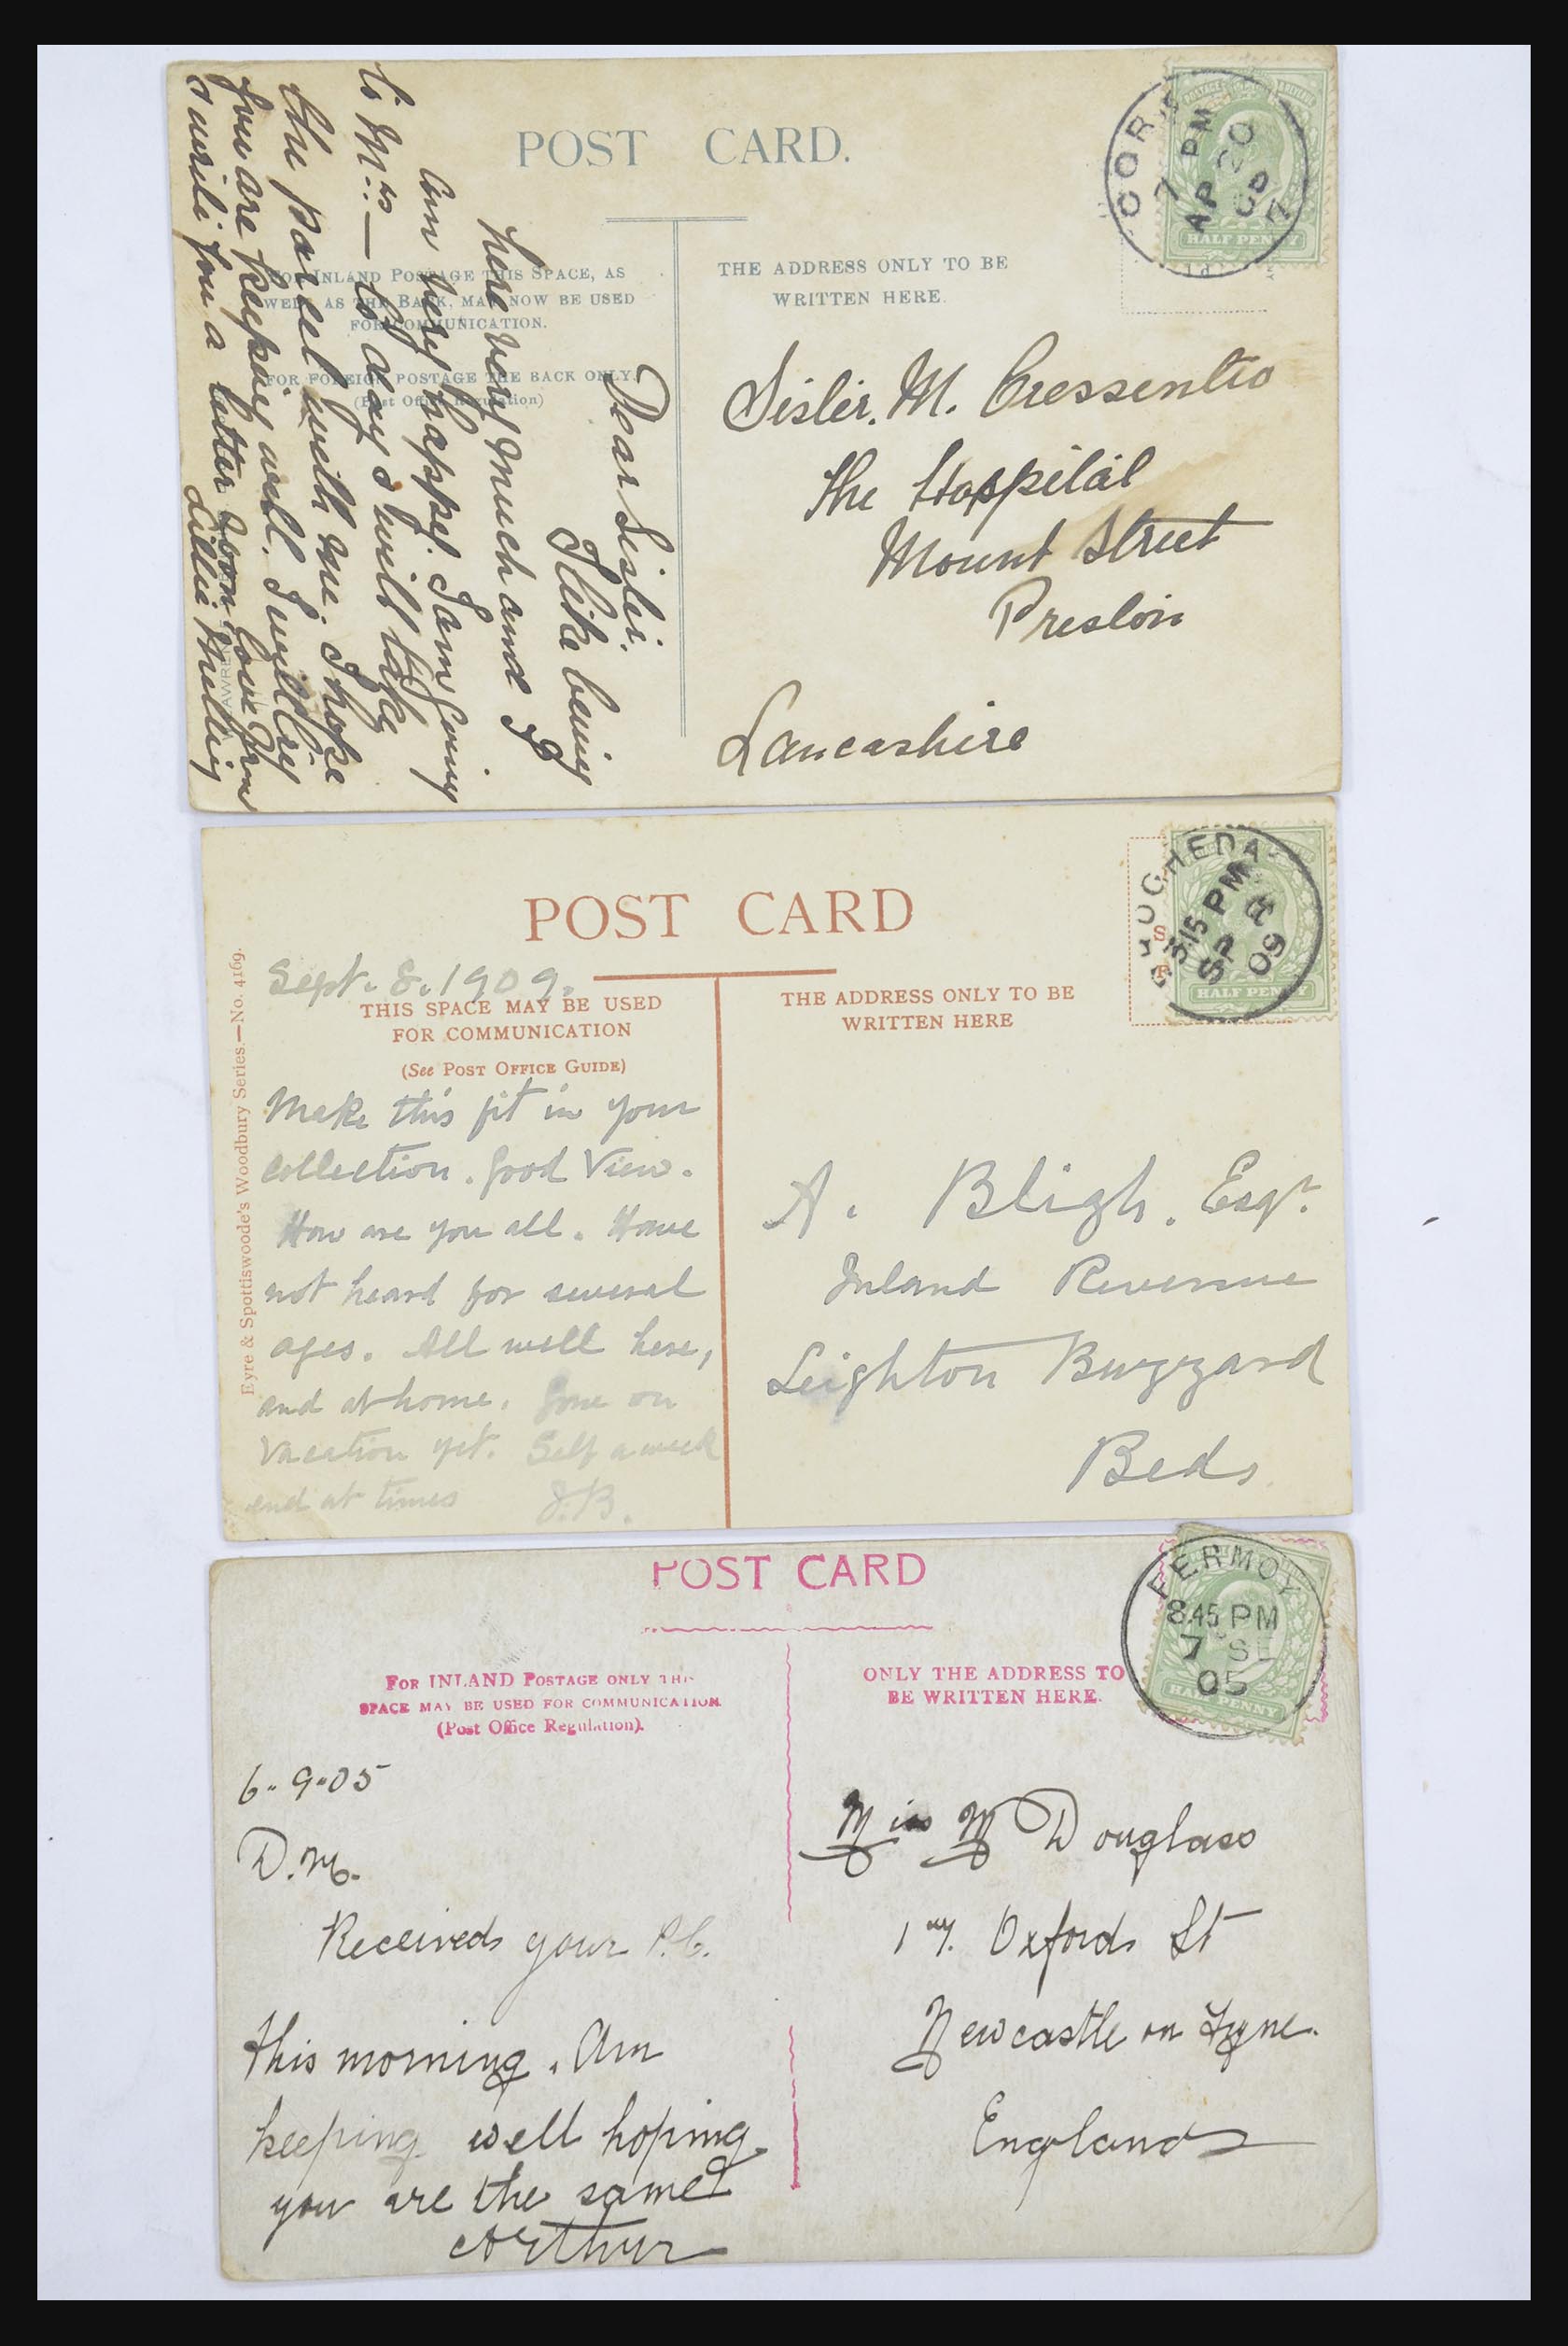 POST CARD.
THE ADDRESS ONLY TO BE
WRITTEN HERE.
FOR INLAND POSTAGE THIS SPACE, AS
WELL AS THE BACK, MAY NOW BE USED
FOR COMMUNICATION.
FOR FOREIGN POSTAGE THE BACK ONLY.
(Post Office Regulation)
CORK
7 PM
AP 20
HALF PENNY
Dear Sister.
I like being
here very much and I
am very happy. I am going
to Mrs — to day I will take
the parcel with me. I hope
you are keeping well. I will try
& write you a letter soon love from
Lillie
Sister. M. Cressentio
The Hospital
Mount Street
Preston
Lancashire
POST CARD
Sept. 8. 1909.
THIS SPACE MAY BE USED
FOR COMMUNICATION
(See POST OFFICE GUIDE)
THE ADDRESS ONLY TO BE
WRITTEN HERE
Eyre & Spottiswoode's Woodbury Series.—No. 4169.
DROGHEDA
3.15 PM
SP 8
09
HALF PENNY
Make this fit in your
collection. Good View.
How are you all. Have
not heard for several
ages. All well here,
and at home. Gone on
vacation yet. Self a week
end at times J.B.
A. Bligh. Esqr.
Inland Revenue
Leighton Buzzard
Beds.
POST CARD
FOR INLAND POSTAGE ONLY THIS
SPACE MAY BE USED FOR COMMUNICATION.
(Post Office Regulation).
ONLY THE ADDRESS TO
BE WRITTEN HERE.
FERMOY
8.45 PM
7 SE
05
HALF PENNY
6-9-05
D.M.
Received your P.C.
this morning. Am
keeping well hoping
you are the same
Arthur
Miss M Douglass
Oxford St
Newcastle on Tyne.
England